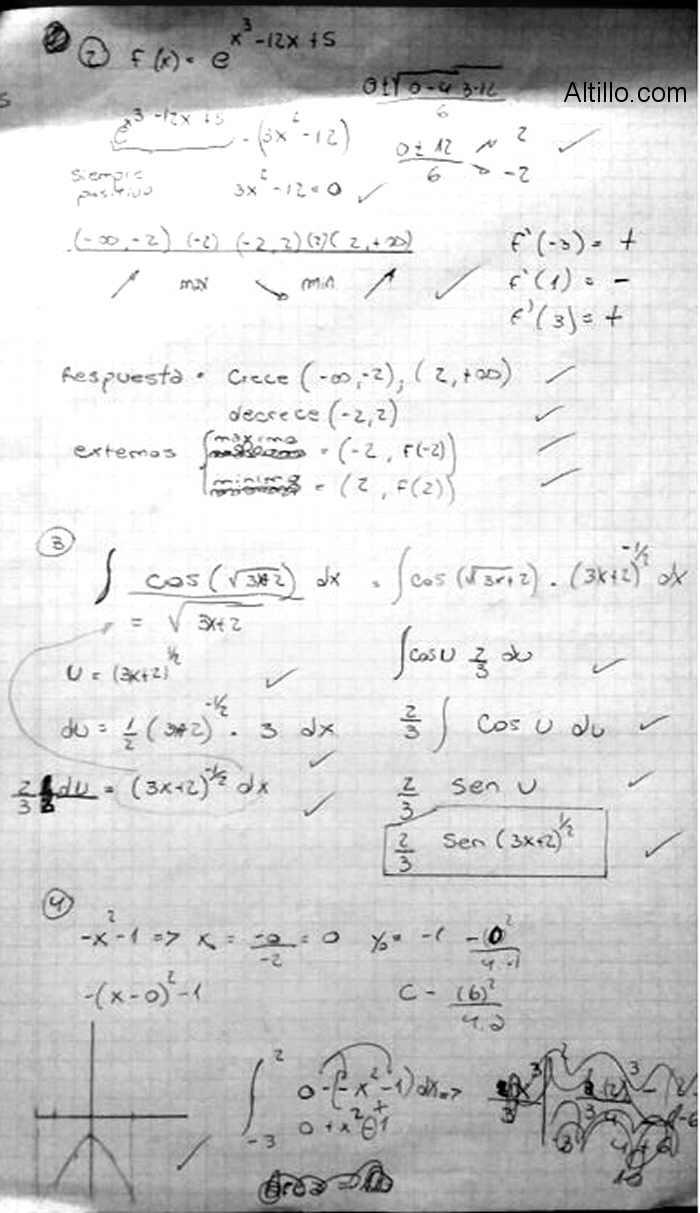 ② f(x) = e^(x³-12x+5)
Altillo.com
0±√(0-4·3·-12) / 6
e^(x³-12x+5) · (3x²-12)
(0±12)/6 → 2
→ -2
siempre positivo
3x²-12=0
(-∞,-2) (-2) (-2,2) (2) (2,+∞)
↗ max ↘ min ↗
f'(-3) = +
f'(1) = -
f'(3) = +
Respuesta = crece (-∞,-2), (2,+∞)
decrece (-2,2)
extemos { maximo = (-2, f(-2))
minimo = (2, f(2))
③
∫ cos(√(3x+2)) / √(3x+2) dx = ∫ cos(√(3x+2)) · (3x+2)^(-1/2) dx
U = (3x+2)^(1/2)
∫ cos U 2/3 du
du = 1/2 (3x+2)^(-1/2) · 3 dx
2/3 ∫ cos U du
2/3 du = (3x+2)^(-1/2) dx
2/3 sen U
2/3 sen (3x+2)^(1/2)
④
-x²-1 => x = -0/-2 = 0
-(x-0)²-1
∫ 2 -3 0-(-x²-1) dx =>
0+x²+1